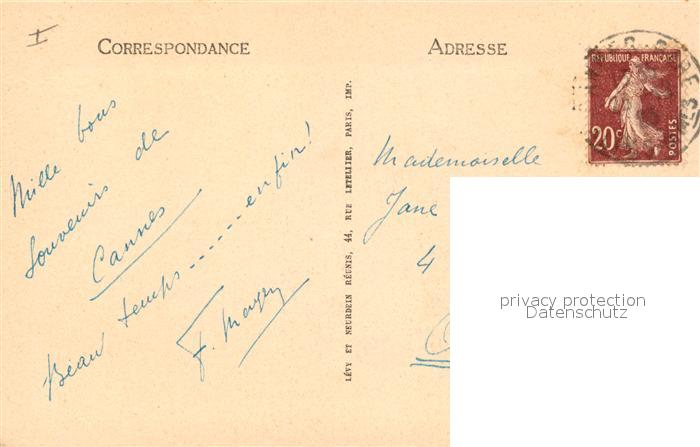 CORRESPONDANCE
ADRESSE
RÉPUBLIQUE FRANÇAISE
20c
POSTES
Mille bons
Souvenirs de
Cannes
Beau temps......enfin!
LÉVY ET NEURDEIN RÉUNIS, 44, RUE LETELLIER, PARIS, IMP.
Mademoiselle
Jane
4
privacy protection
Datenschutz